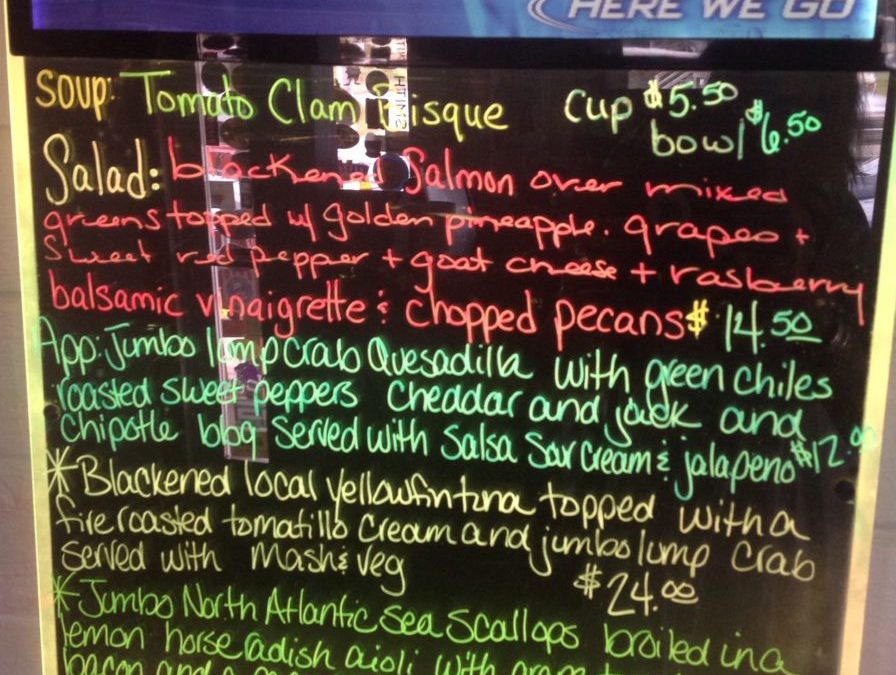 HERE WE GO
Soup: Tomato Clam Bisque Cup $5.50
bowl $6.50
Salad: blackened Salmon over mixed
greens topped w/ golden pineapple. grapes +
Sweet red pepper + goat cheese + rasberry
balsamic vinaigrette & chopped pecans $14.50
App: Jumbo lump crab Quesadilla with green chiles
roasted sweet peppers Cheddar and jack and
Chipotle bbq Served with Salsa Sour Cream & jalapeno $12.00
*Blackened local yellowfin tuna topped with a
fire roasted tomatillo cream and jumbo lump crab
served with Mash & veg $24.00
*Jumbo North Atlantic Sea Scallops broiled in a
lemon horseradish aioli with
bacon and